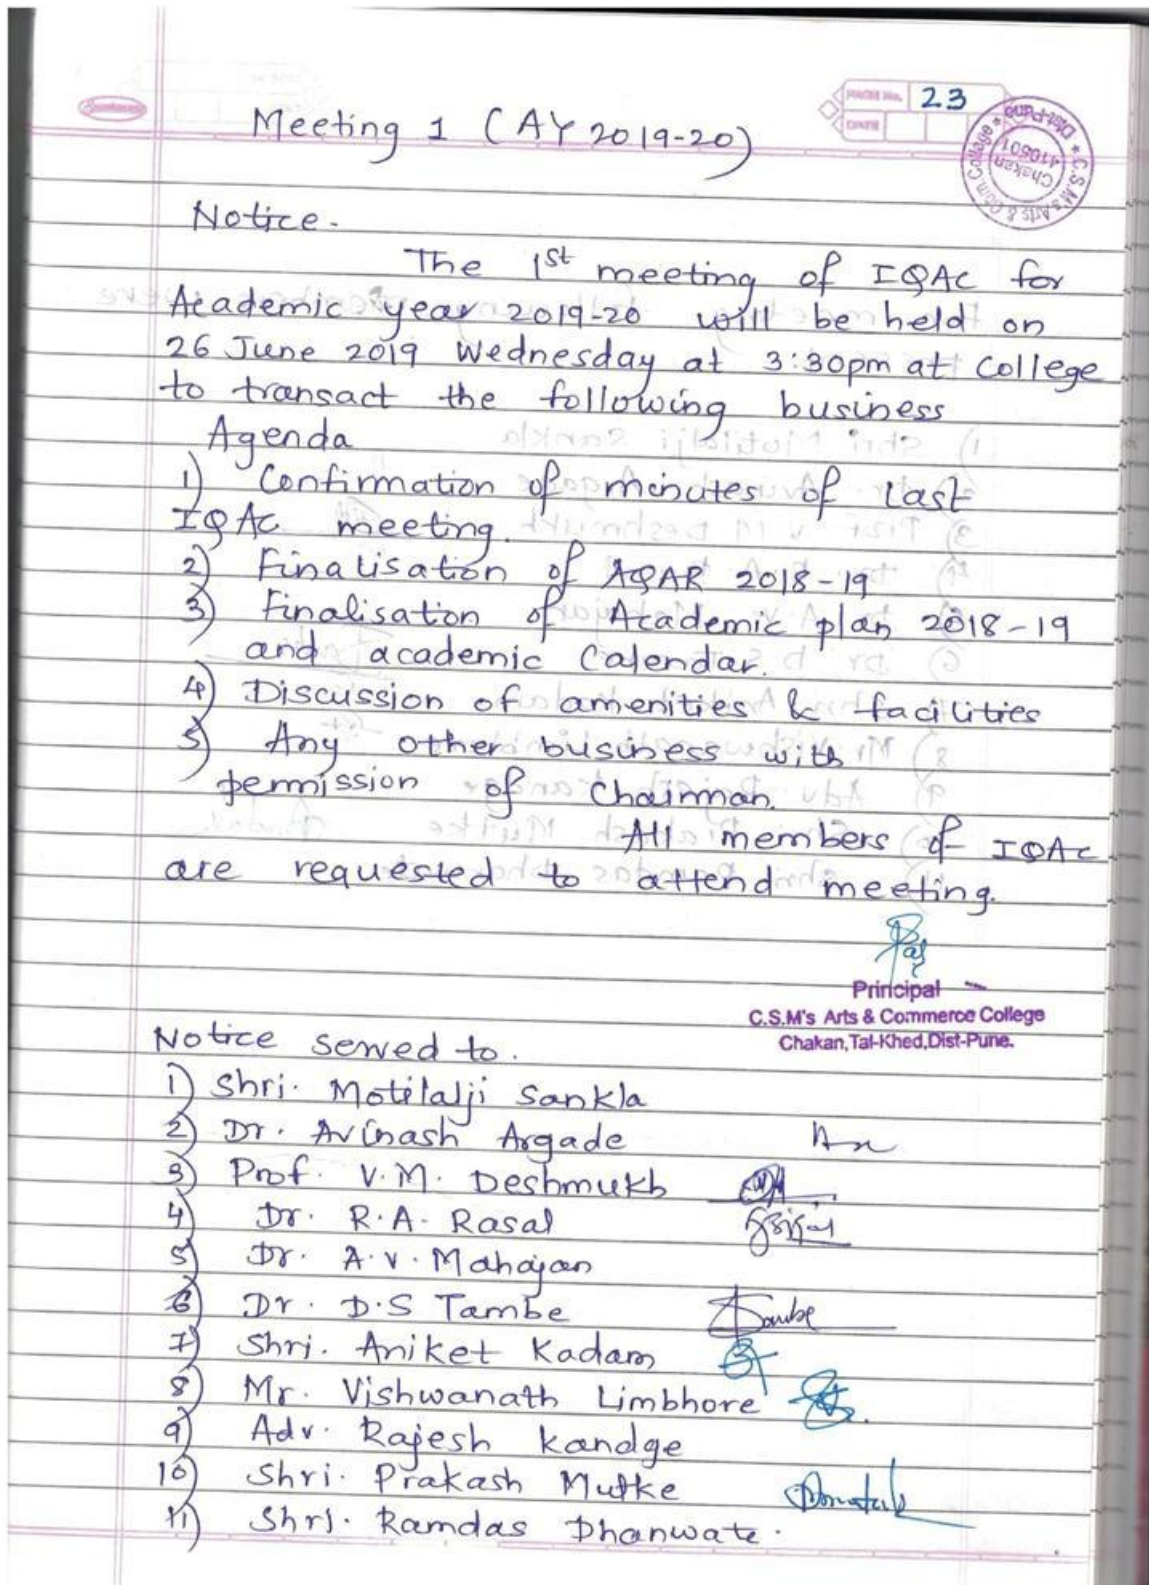 PAGE No. 23
DATE
C.S.M's Arts & Com College * Dist-Pune *
Chakan
410501
Meeting 1 (AY 2019-20)
Notice.
The 1st meeting of IQAC for
Academic year 2019-20 will be held on
26 June 2019 Wednesday at 3:30pm at College
to transact the following business
Agenda
1) Confirmation of minutes of Last
IQAC meeting.
2) Finalisation of AQAR 2018-19
3) Finalisation of Academic plan 2018-19
and academic Calendar.
4) Discussion of amenities & facilities
5) Any other business with
permission of Chairman.
All members of IQAC
are requested to attend meeting.
Principal
C.S.M's Arts & Commerce College
Chakan, Tal-Khed, Dist-Pune.
Notice served to.
1) Shri. Motilalji Sankla
2) Dr. Avinash Argade
3) Prof. V.M. Deshmukh
4) Dr. R.A. Rasal
5) Dr. A.V. Mahajan
6) Dr. D.S Tambe
7) Shri. Aniket Kadam
8) Mr. Vishwanath Limbhore
9) Adv. Rajesh Kandge
10) Shri. Prakash Mutke
11) Shri. Ramdas Dhanwate.